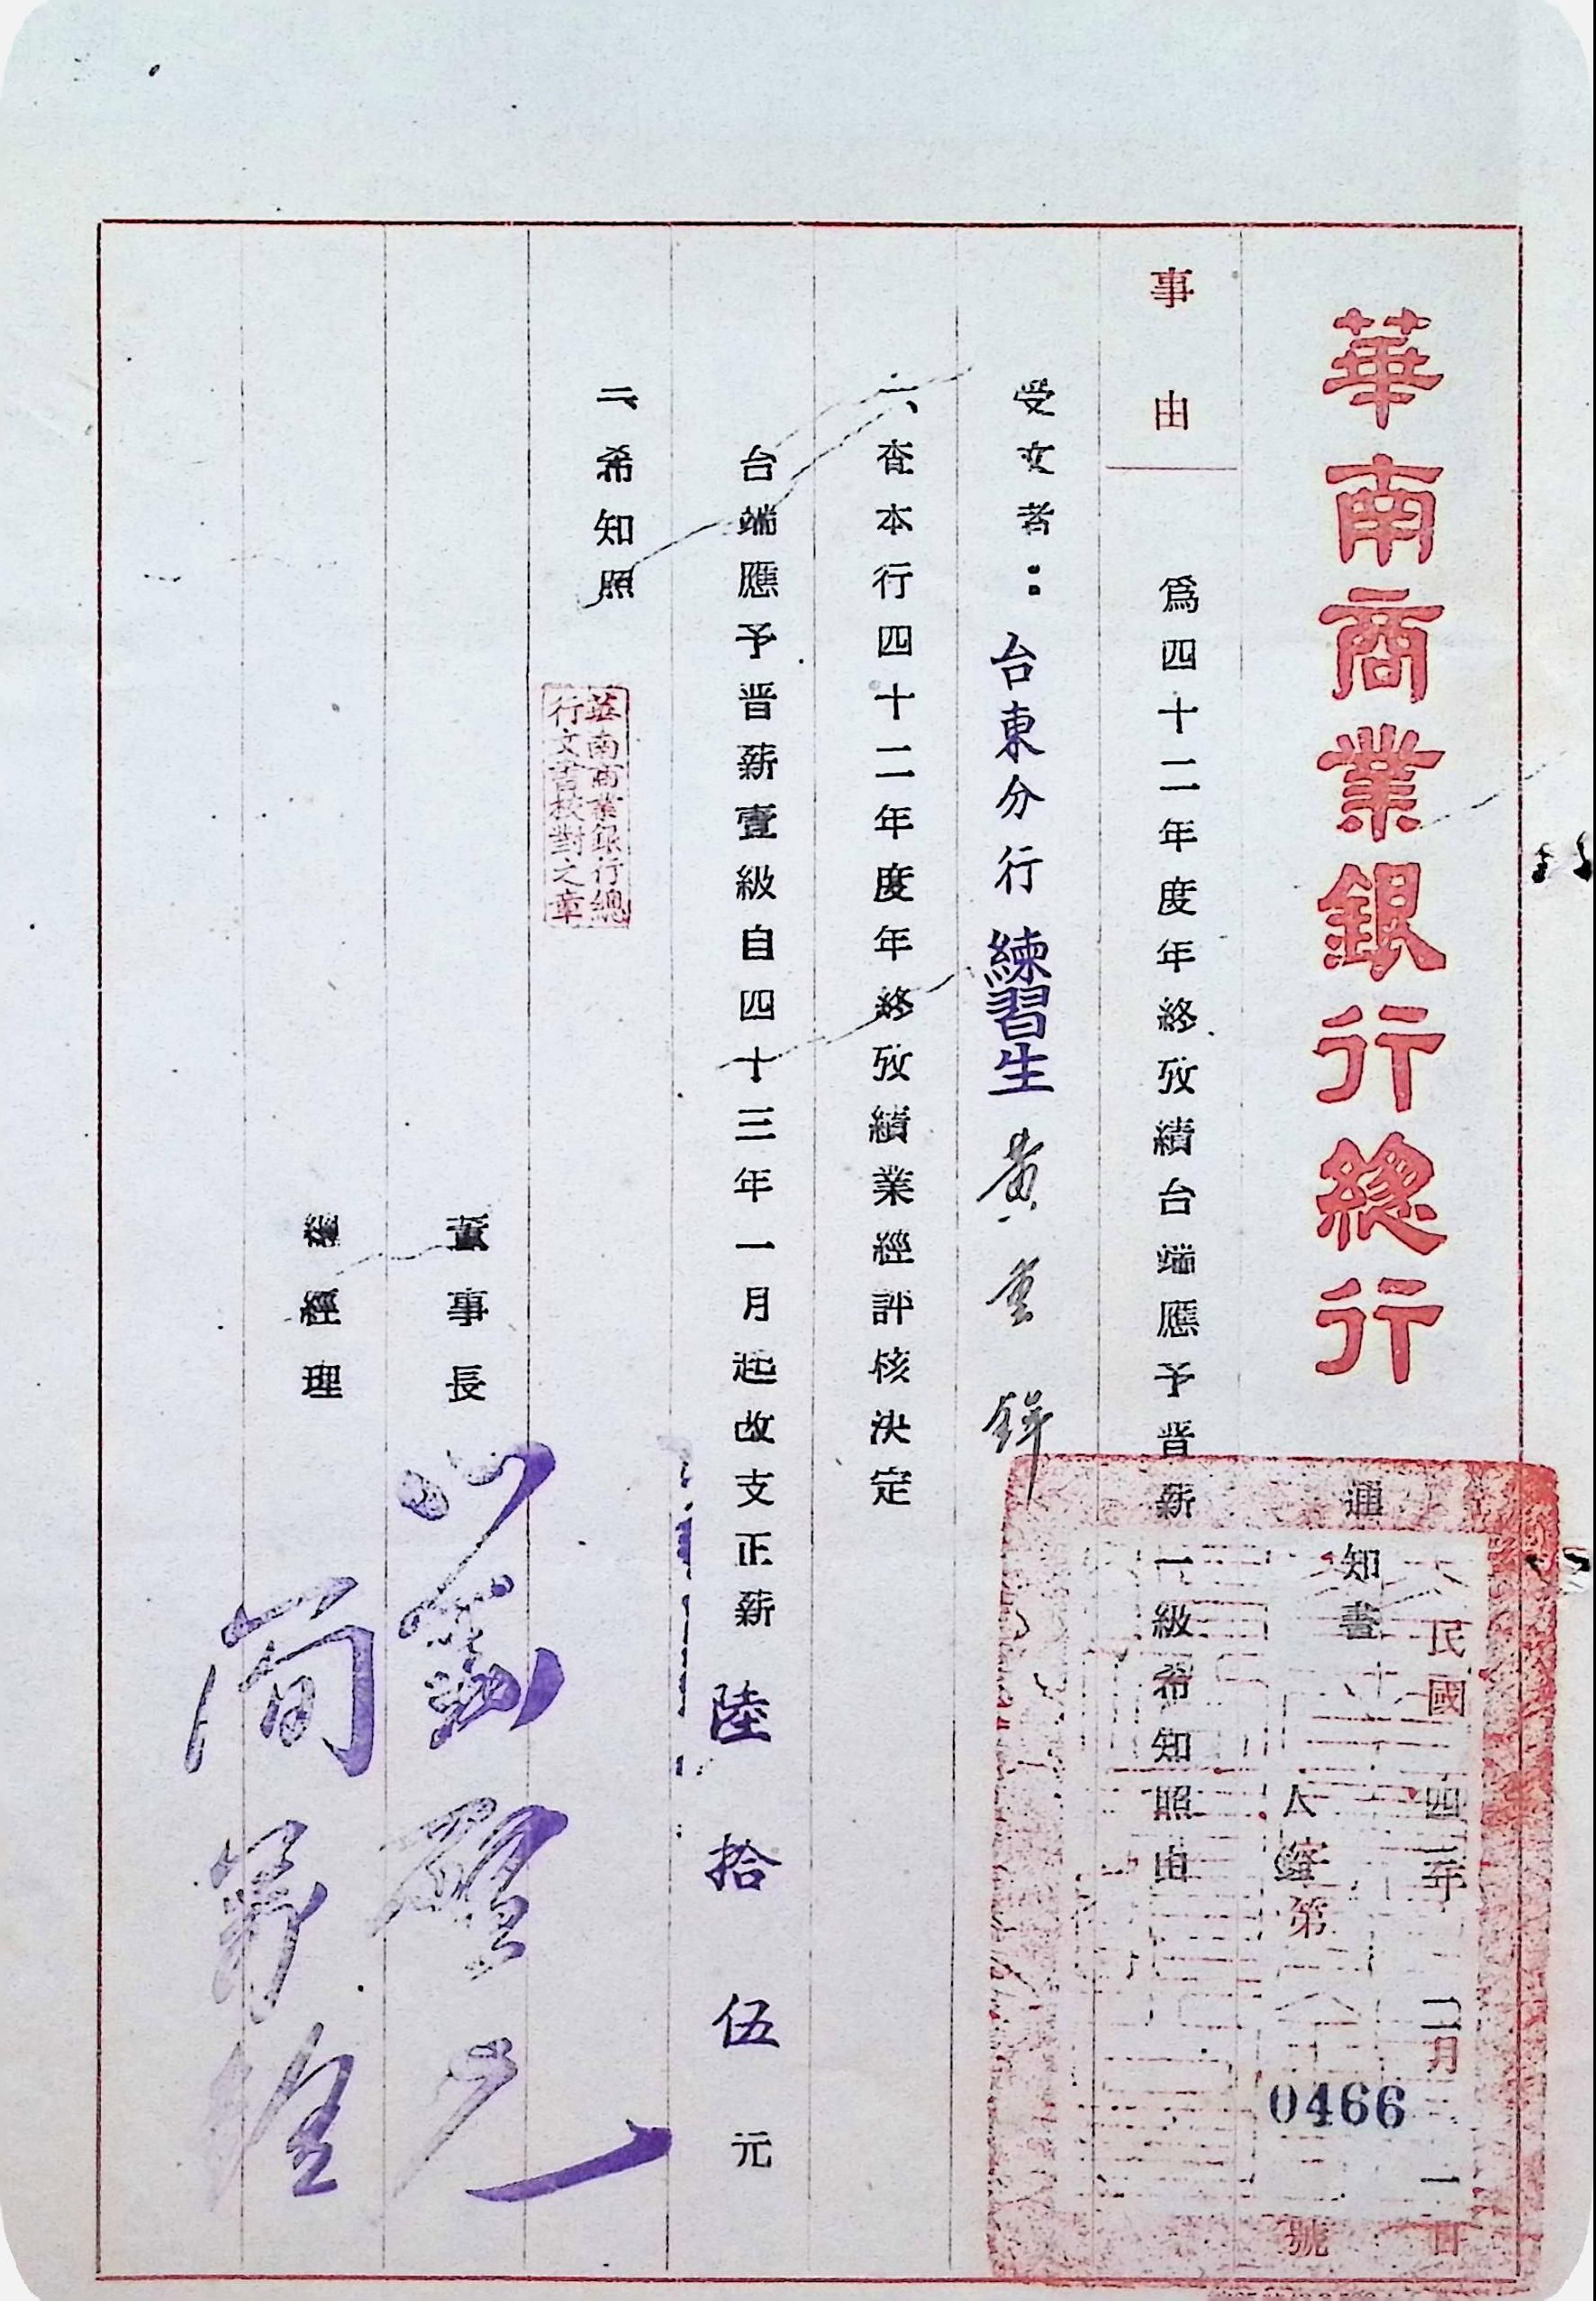 華南商業銀行總行
通知書
民國四三年二月 一日
人 第0466號
事由
為四十二年度年終攷績台端應予晋薪一級希知照由
受文者：台東分行 練習生 黃重鋅
一、查本行四十二年度年終攷績業經評核決定
台端應予晋薪壹級自四十三年一月起改支正薪陸拾伍元
二、希知照
華南商業銀行總
行文書校對之章
董事長 劉啓光
總經理